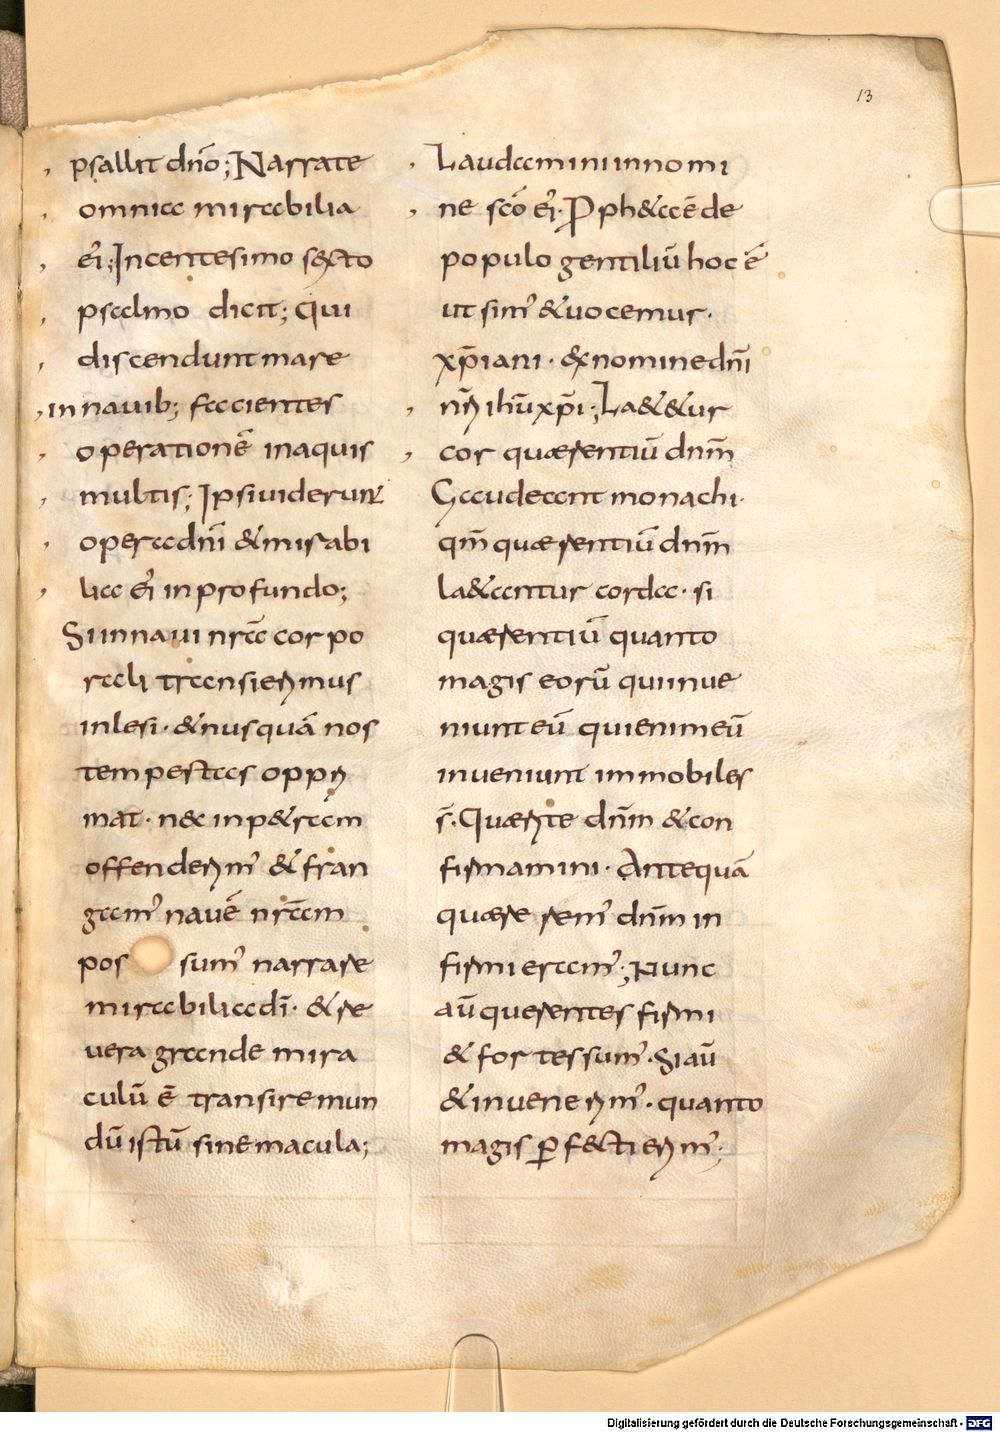 13
psallit dn̄o; Narrate
omnia mirabilia
ei'; In centesimo sexto
psalmo dicit; Qui
discendunt mare
in nauib; facientes
operationē in aquis
multis; Ipsi uiderunt
opera dn̄i & mirabi
lia ei' in profundo;
Si in naui nr̄a corpo
rali transierimus
inlesi · & nusquā nos
tempestas oppri
mat · nec in p&ram
offenderim' & fran
gam' nauē nr̄am
pos sum' narrare
mirabilia dī · & re
uera grande mira
culū ē transire mun
dū istū sine macula;
Laudamini in nomi
ne sc̄o ei'· Pph&a ē de
populo gentiliū hoc ē
ut sim' & uocemur ·
xp̄iani · ex nomine dn̄i
nr̄i ihū xp̄i; La&&ur
cor quærentiū dn̄m
Gaudeant monachi ·
qm̄ quærentiū dn̄m
la&antur corda · si
quærentiū quanto
magis eorū qui inue
niunt eū qui enim eū
inueniunt immobiles
s̄· Quærite dn̄m & con
firmamini · Antequā
quære rem' dn̄m in
firmi eram'; Nunc
aū querentes firmi
& fortes sum'· Si aū
& inuene rim'· quanto
magis ꝑf&ti erim';
Digitalisierung gefördert durch die Deutsche Forschungsgemeinschaft - DFG